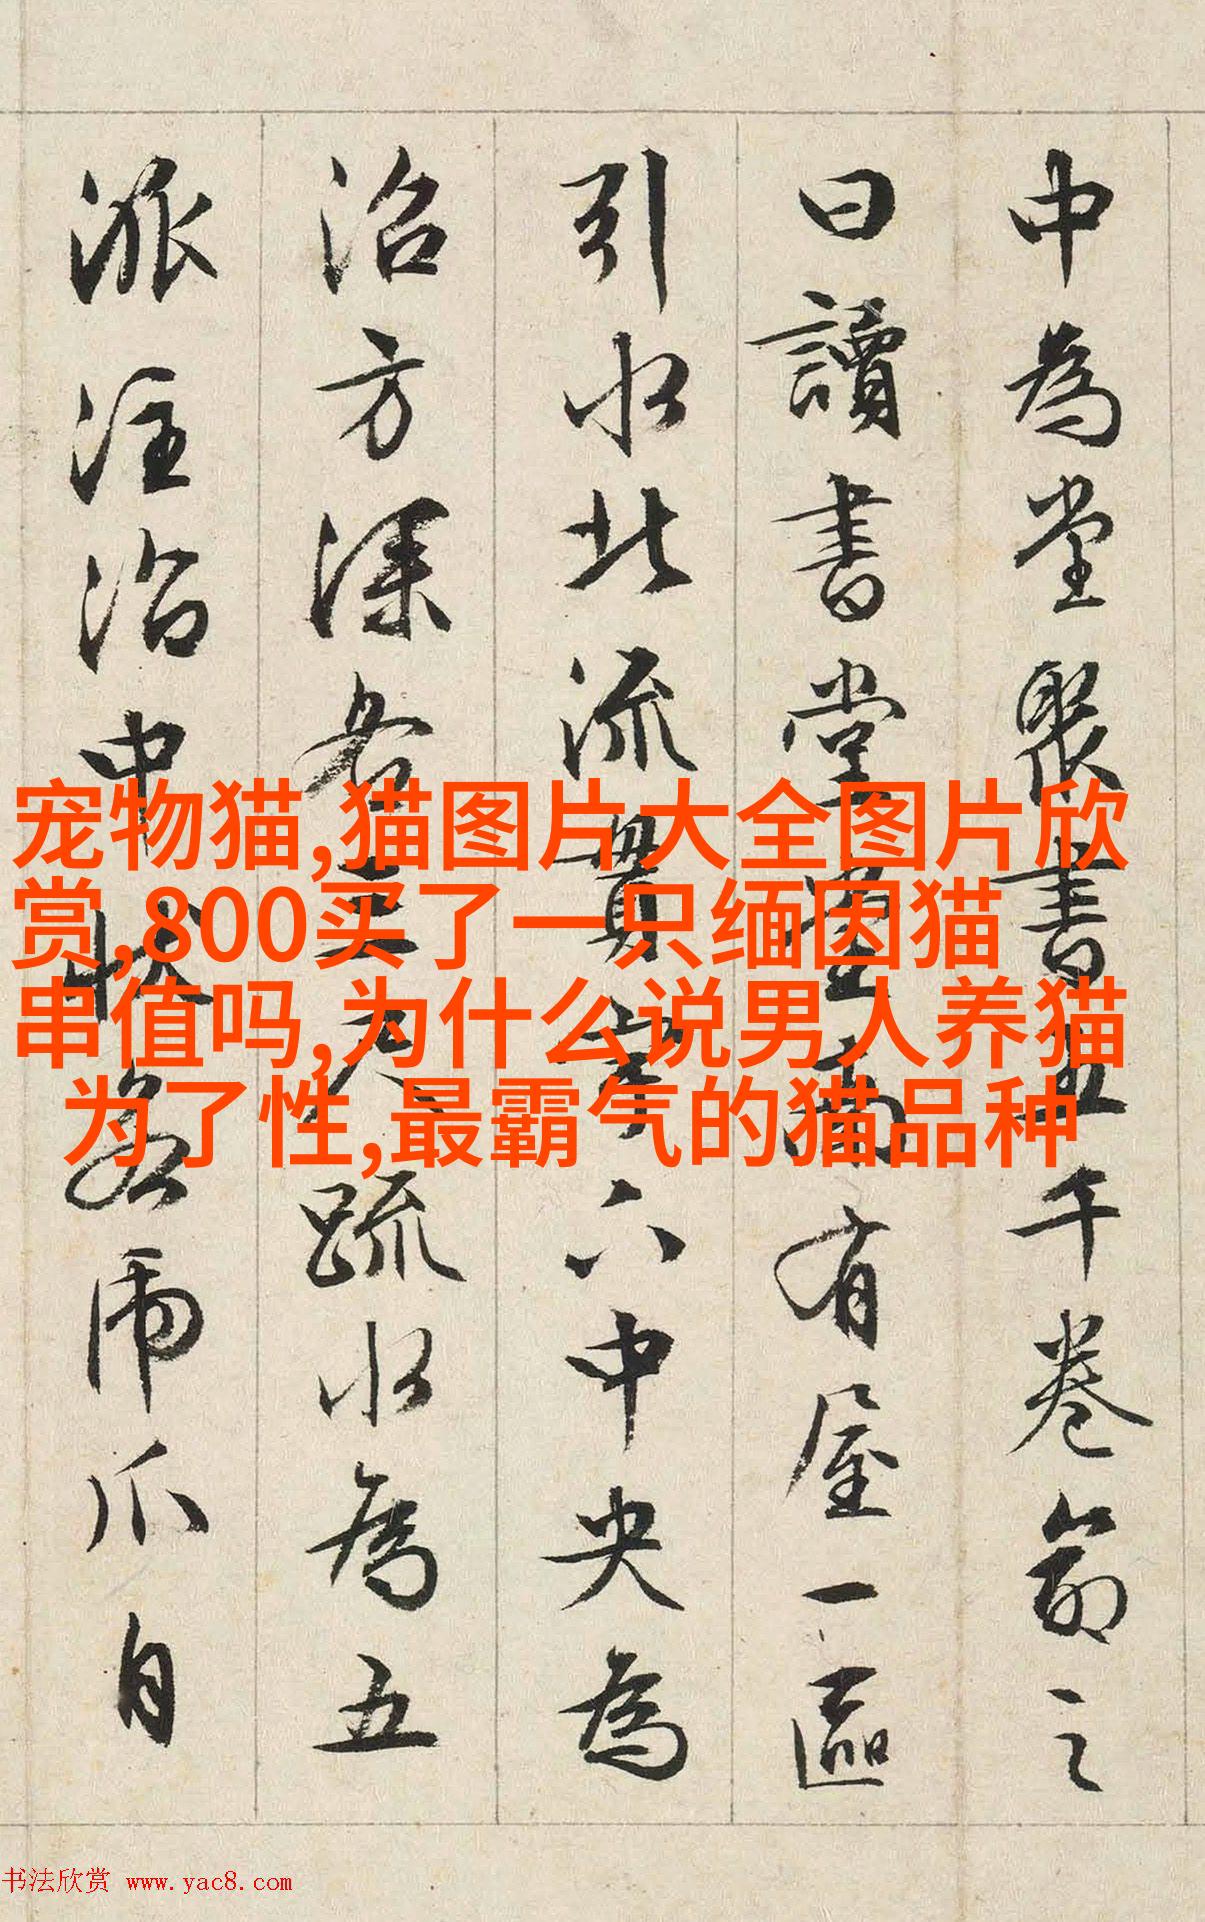 中為堂聚書五千卷命之
曰讀書堂堂南有屋一區
引水北流貫宇下中央為
沼方深各三尺疏水為五
派注沼中狀若虎爪自
宠物猫,猫图片大全图片欣
赏,800买了一只缅因猫
串值吗,为什么说男人养猫
为了性,最霸气的猫品种
书法欣赏 www.yac8.com